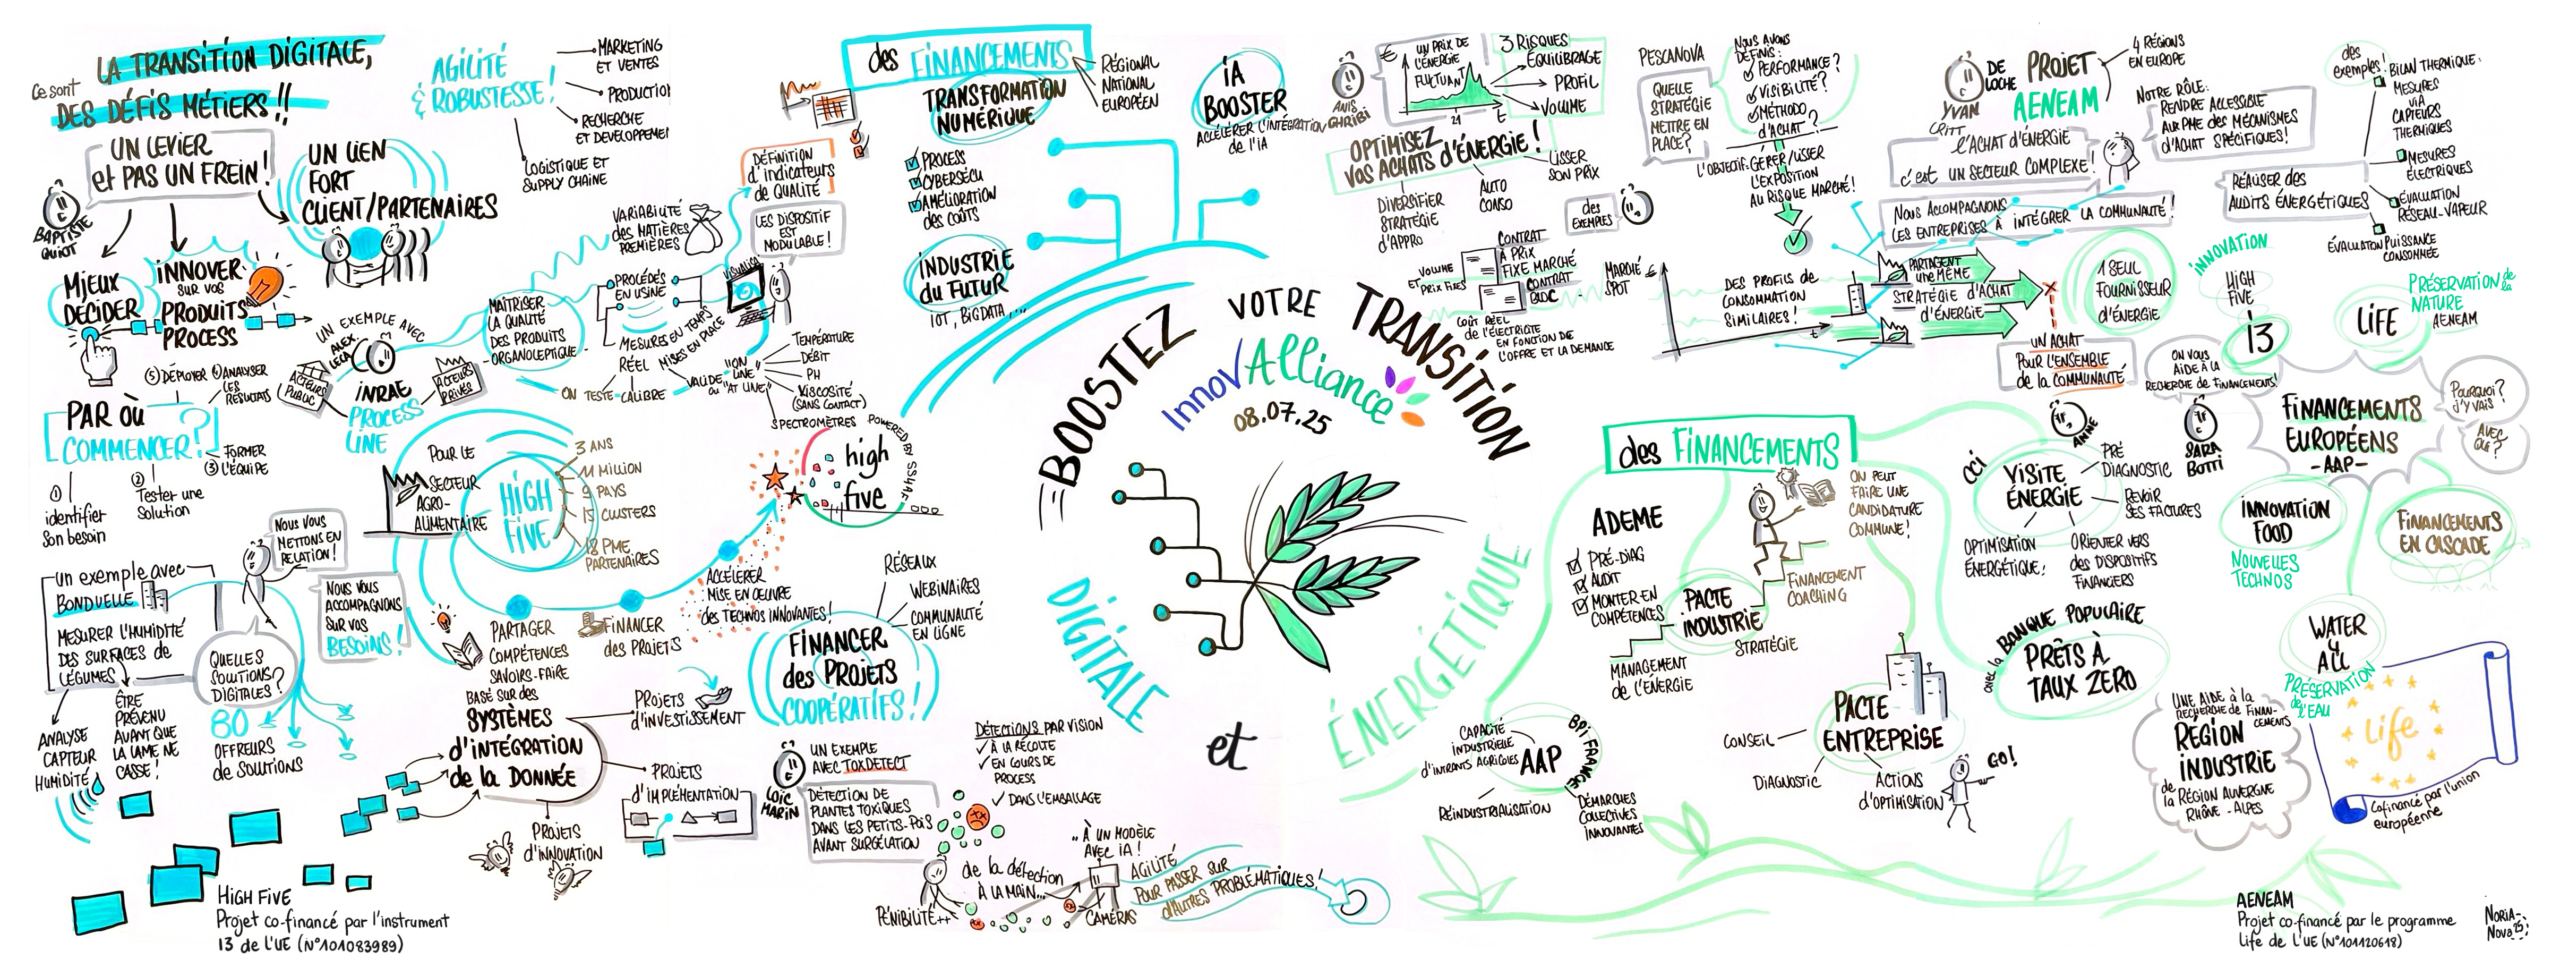 Ce sont
LA TRANSITION DIGITALE,
DES DÉFIS MÉTIERS !!
UN LEVIER
et PAS UN FREIN !
BAPTISTE
QUIOT
UN LIEN
FORT
CLIENT/PARTENAIRES
MIEUX
DÉCIDER
INNOVER
SUR VOS
PRODUITS
PROCESS
AGILITÉ
& ROBUSTESSE !
MARKETING
ET VENTES
PRODUCTION
RECHERCHE
ET DEVELOPPEMEN
LOGISTIQUE ET
SUPPLY CHAINE
PAR OÙ
COMMENCER ?
① identifier
son besoin
② Tester une
solution
③ FORMER
L'ÉQUIPE
④ ANALYSER
LES
RÉSULTATS
⑤ DÉPLOYER
UN EXEMPLE AVEC
ALEX.
LECA
ACTEURS
PUBLIC
INRAE
PROCESS
LINE
ACTEURS
PRIVÉS
MAÎTRISER
LA QUALITÉ
DES PRODUITS
-ORGANOLEPTIQUE-
VARIABILITÉ
des MATIÈRES
PREMIÈRES
PROCÉDÉS
EN USINE
MESURES EN TEMPS
RÉEL MISES EN PLACE
ON TESTE - CALIBRE
VALIDE
"ON
LINE"
ou "AT LINE"
VISUALISA
DÉFINITION
d'indicateurs
de QUALITÉ
LES DISPOSITIF
EST
MODULABLE !
TEMPÉRATURE
DÉBIT
PH
VISCOSITÉ
(SANS CONTACT)
SPECTROMÈTRES
POUR LE
SECTEUR
AGRO-
ALIMENTAIRE
HIGH
FIVE
3 ANS
11 MILLION
9 PAYS
13 CLUSTERS
18 PME
PARTENAIRES
POWERED BY SSHAF
high
five
PARTAGER
COMPÉTENCES
SAVOIRS-FAIRE
FINANCER
des PROJETS
ACCÉLERER
MISE EN ŒUVRE
des TECHNOS INNOVANTES !
un exemple avec
BONDUELLE
MESURER L'HUMIDITÉ
DES SURFACES de
LÉGUMES
ANALYSE
CAPTEUR
HUMIDITÉ
ÊTRE
PRÉVENU
AVANT QUE
LA LAME NE
CASSE !
NOUS VOUS
METTONS EN
RELATION !
NOUS VOUS
ACCOMPAGNONS
SUR VOS
BESOINS !
QUELLES
SOLUTIONS
DIGITALES ?
80
OFFREURS
de SOLUTIONS
BASÉ SUR DES
SYSTÈMES
d'INTÉGRATION
de la DONNÉE
PROJETS
d'INVESTISSEMENT
PROJETS
d'IMPLÉMENTATION
PROJETS
d'INNOVATION
FINANCER
des PROJETS
COOPÉRATIFS !
RÉSEAUX
WEBINAIRES
COMMUNAUTÉ
EN LIGNE
LOÏC
MARIN
UN EXEMPLE
AVEC TOXDETECT
DÉTECTION DE
PLANTES TOXIQUES
DANS LES PETITS-POIS
AVANT SURGÉLATION
DÉTECTIONS PAR VISION
✓ À LA RÉCOLTE
✓ EN COURS DE
PROCESS
✓ DANS L'EMBALLAGE
PÉNIBILITÉ++
de la détection
À LA MAIN...
.. À UN MODÈLE
AVEC IA !
CAMÉRAS
AGILITÉ
POUR PASSER SUR
d'AUTRES PROBLÉMATIQUES !
HIGH FIVE
Projet co-financé par l'instrument
I3 de L'UE (N°101083989)
des FINANCEMENTS
RÉGIONAL
NATIONAL
EUROPÉEN
TRANSFORMATION
NUMÉRIQUE
PROCESS
CYBERSÉCU
AMÉLIORATION
des COÛTS
INDUSTRIE
du FUTUR
IOT, BIGDATA, ...
iA
BOOSTER
ACCÉLÉRER L'INTÉGRATION
de l'iA
BOOSTEZ VOTRE TRANSITION
InnovAlliance
08.07.25
DIGITALE
et
ÉNERGÉTIQUE
ANIS
GHRIBI
€
UN PRIX DE
L'ÉNERGIE
FLUCTUANT
21
t
3 RISQUES
ÉQUILIBRAGE
PROFIL
VOLUME
OPTIMISEZ
VOS ACHATS d'ÉNERGIE !
DIVERSIFIER
STRATÉGIE
d'APPRO
AUTO
CONSO
LISSER
SON PRIX
des
EXEMPLES
VOLUME
ET PRIX FIXES
CONTRAT
À PRIX
FIXE MARCHÉ
CONTRAT
BLOC
COÛT RÉEL
de L'ÉLECTRICITÉ
EN FONCTION DE
L'OFFRE ET LA DEMANDE
MARCHÉ €
SPOT
PESCANOVA
QUELLE
STRATÉGIE
METTRE EN
PLACE ?
NOUS AVONS
DÉFINIS :
PERFORMANCE ?
VISIBILITÉ ?
MÉTHODO
d'ACHAT ?
L'OBJECTIF : GÉRER / LISSER
L'EXPOSITION
AU RISQUE MARCHÉ !
DES PROFILS de
CONSOMMATION
SIMILAIRES !
t
YVAN
DE
LOCHE
CRITT
PROJET
AENEAM
4 RÉGIONS
EN EUROPE
NOTRE RÔLE:
RENDRE ACCESSIBLE
AUX PME des MÉCANISMES
d'ACHAT SPÉCIFIQUES !
l'ACHAT D'ÉNERGIE
c'est UN SECTEUR COMPLEXE !
NOUS ACCOMPAGNONS
LES ENTREPRISES À INTÉGRER LA COMMUNAUTÉ !
PARTAGENT
UNE MÊME
STRATÉGIE d'ACHAT
d'ÉNERGIE
1 SEUL
FOURNISSEUR
D'ÉNERGIE
UN ACHAT
POUR L'ENSEMBLE
de la COMMUNAUTÉ
RÉALISER des
AUDITS ÉNERGÉTIQUES
des
exemples !
BILAN THERMIQUE :
MESURES
VIA
CAPTEURS
THERMIQUES
MESURES
ÉLECTRIQUES
ÉVALUATION
RÉSEAU-VAPEUR
ÉVALUATON PUISSANCE
CONSOMMÉE
INNOVATION
HIGH
FIVE
i3
LiFE
PRÉSERVATION de la
NATURE
AENEAM
ON VOUS
AIDE À LA
RECHERCHE de FINANCEMENTS!
SARA
BOTTI
FINANCEMENTS
EUROPÉENS
-AAP-
Pourquoi?
J'Y VAIS?
AVEC
QUI ?
INNOVATION
FOOD
NOUVELLES
TECHNOS
FINANCEMENTS
EN CASCADE
WATER
4
ALL
PRÉSERVATION
de
l'EAU
Life
Cofinancé par l'union
européenne
des FINANCEMENTS
ADEME
PRÉ-DIAG
AUDIT
MONTER EN
COMPÉTENCES
PACTE
INDUSTRIE
MANAGEMENT
de L'ÉNERGIE
STRATÉGIE
FINANCEMENT
COACHING
ON PEUT
FAIRE UNE
CANDIDATURE
COMMUNE !
ANNE
CCI
VISITE
ÉNERGIE
PRÉ
DIAGNOSTIC
REVOIR
SES FACTURES
OPTIMISATION
ÉNERGÉTIQUE
ORIENTER VERS
des DISPOSITIFS
FINANCIERS
avec la BANQUE POPULAIRE
PRÊTS À
TAUX ZERO
PACTE
ENTREPRISE
CONSEIL
DIAGNOSTIC
ACTIONS
d'OPTIMISATION
GO!
BPI FRANCE
AAP
CAPACITÉ
INDUSTRIELLE
d'INTRANTS AGRICOLES
RÉINDUSTRIALISATION
DÉMARCHES
COLLECTIVES
INNOVANTES
UNE AIDE à la
RECHERCHE de FINAN-
CEMENTS
REGION
INDUSTRIE
de
la RÉGION AUVERGNE
RHÔNE-ALPES
AENEAM
Projet co-financé par le programme
Life de L'UE (N°101120618)
NORIA-
Nova 25